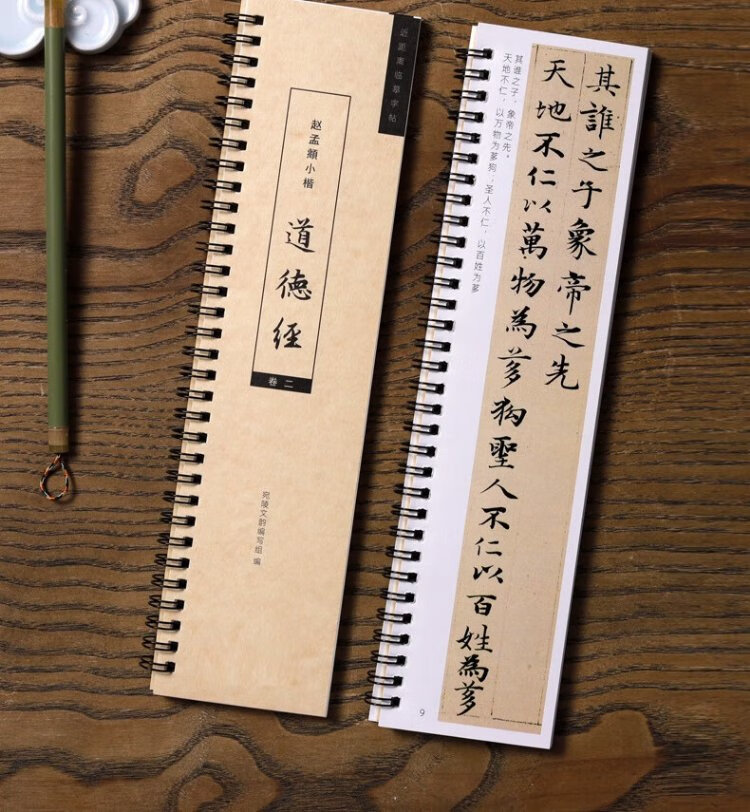 近距离临摹字帖
赵孟頫小楷
道德經
卷二
宛陵文韵编写组 编
其谁之子，象帝之先。
天地不仁，以万物为刍狗；圣人不仁，以百姓为刍
其誰之子象帝之先
天地不仁以萬物為芻狗聖人不仁以百姓為芻
9